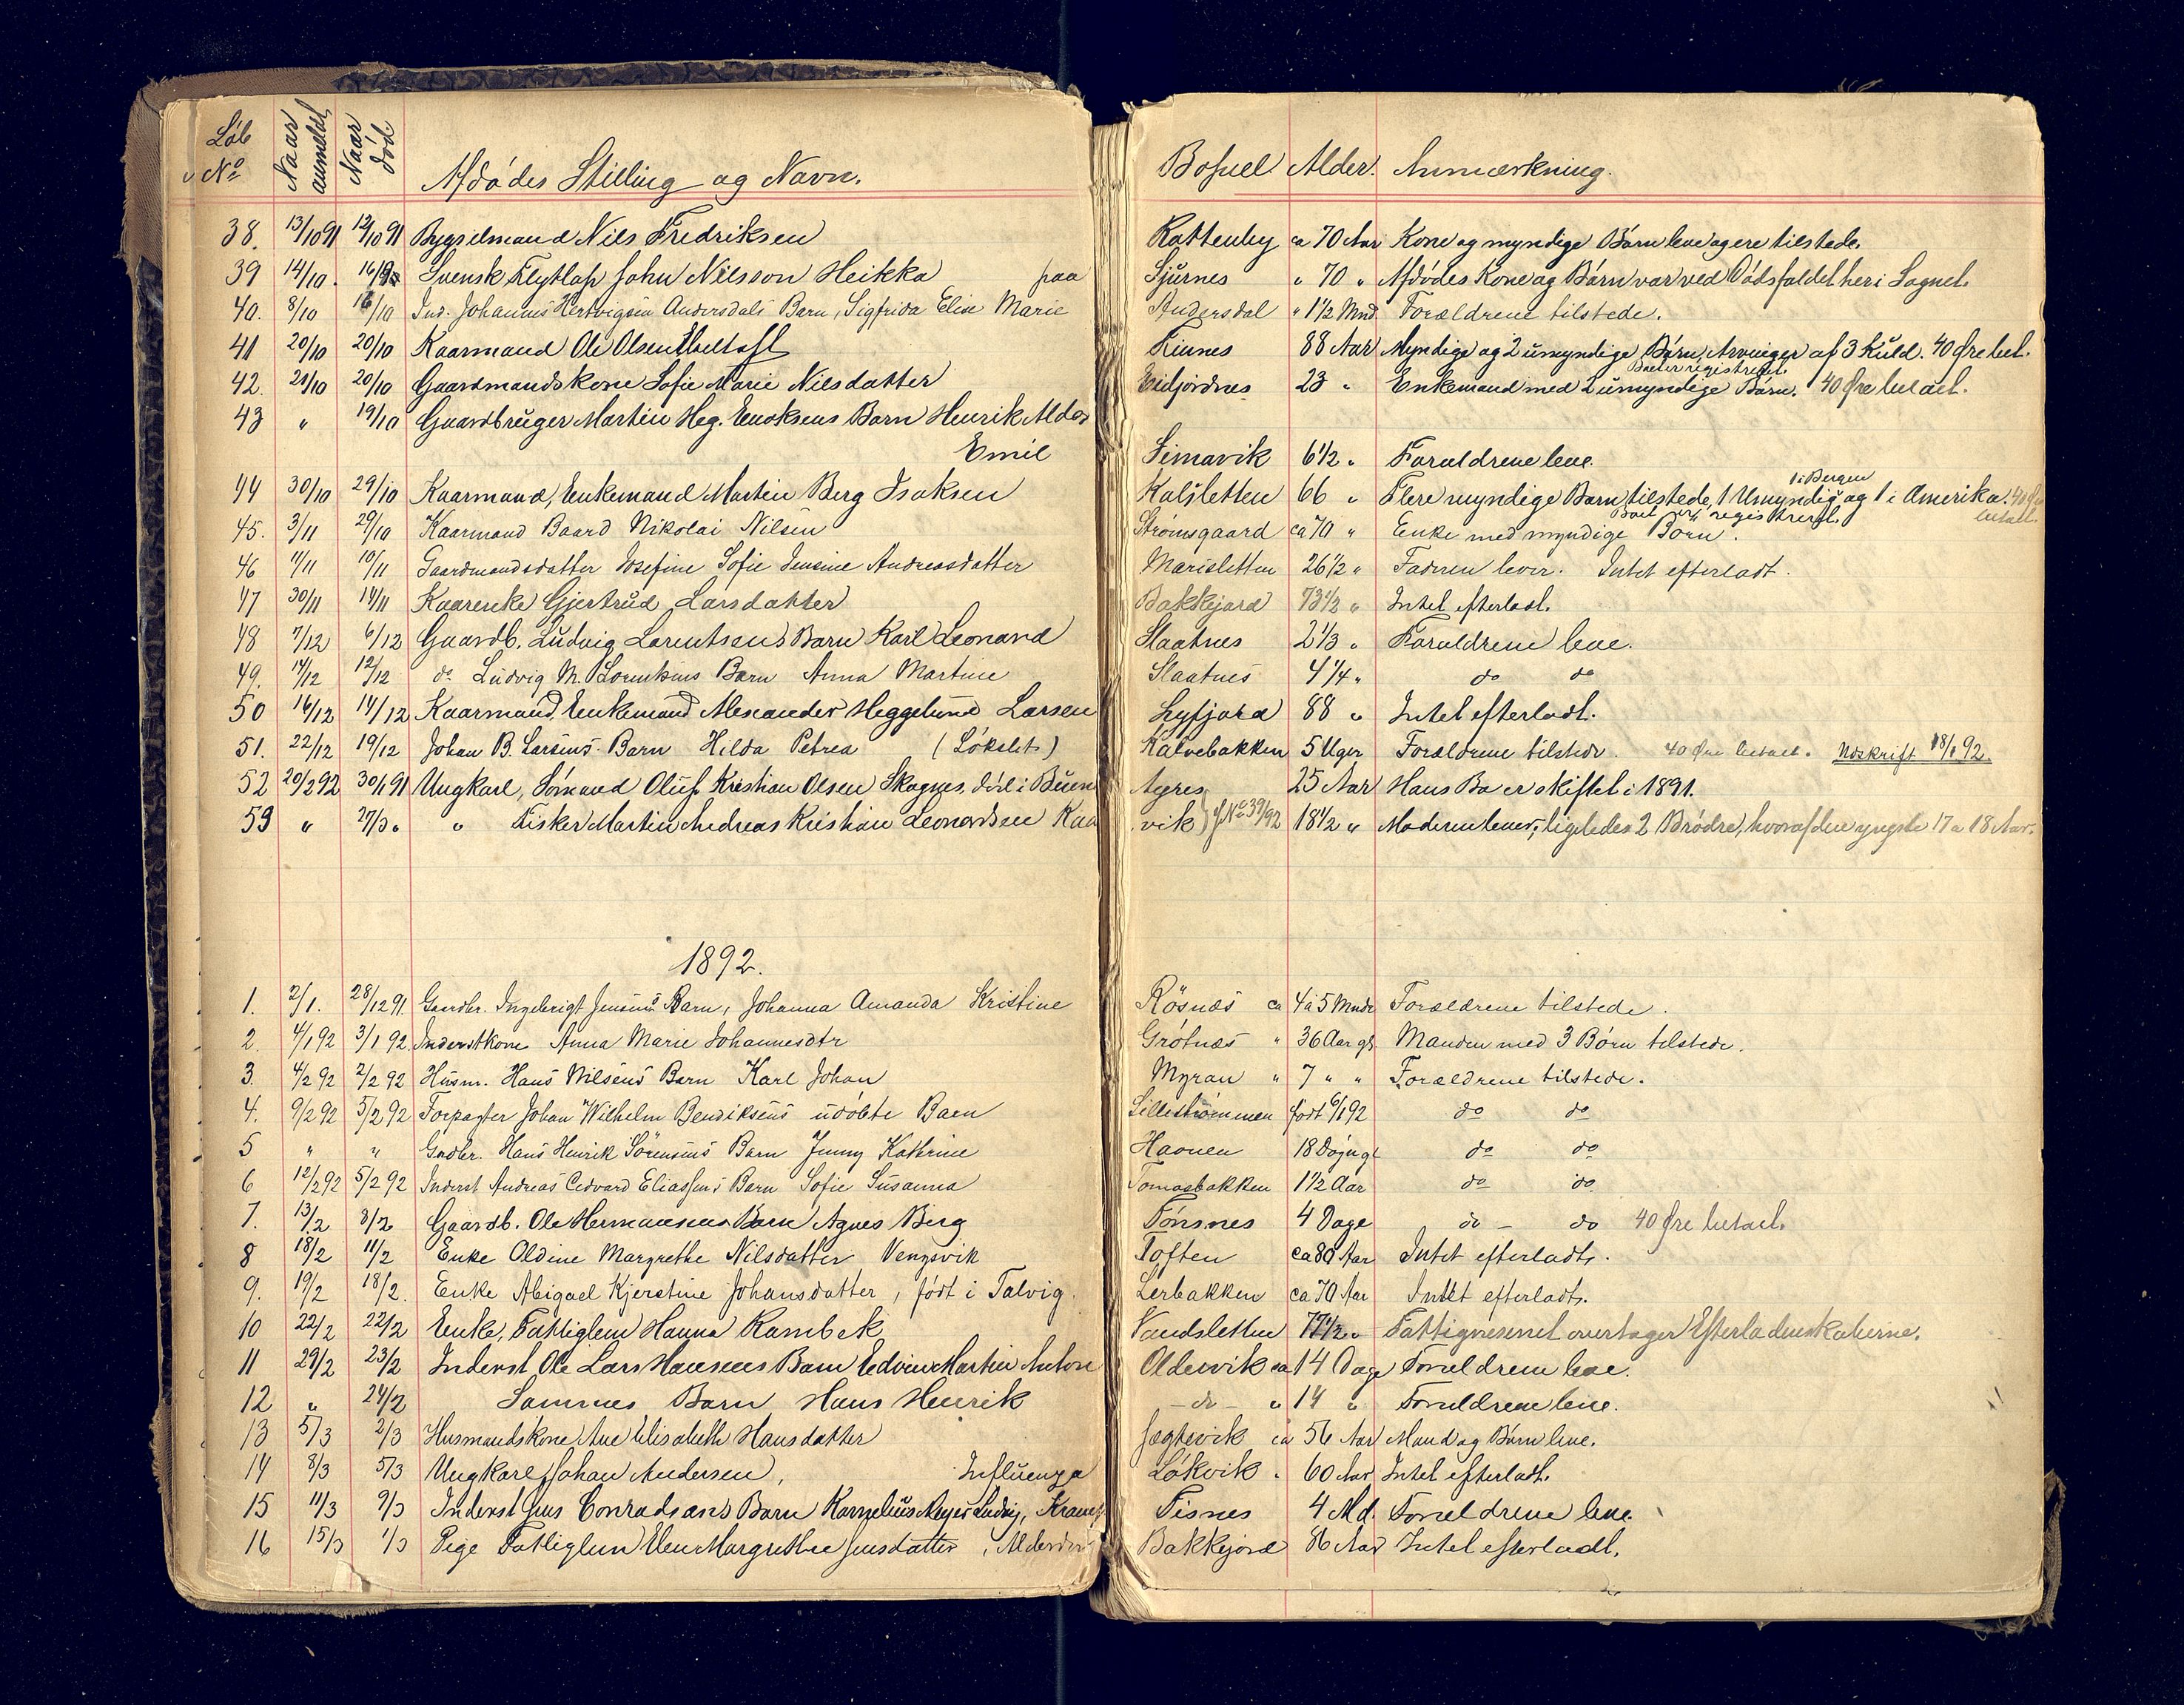 Løb No Naar anmeldt Naar død Afdødes Stilling og Navn. Bopæl. Alder. Anmærkning.
38. 13/10 91 12/10 91 Bygselmand Nils Fredriksen Kattenby ca 70 Aar Kone og myndige Børn leve og ere tilstede.
39 14/10. Svensk Flytlap John Nilsson Heikka paa Sjursnes " 70 " Afdødes Kone og Børn var ved Dødsfaldet her i Sognet.
40. 8/10 16/10 Ind. Johannes Hertvigsen Andersdals Barn, Sigfrida Elise Marie Andersdal " 1 1/2 Mnd. Forældrene tilstede.
41 20/10 20/10 Kaarmand Ole Olsen Finnes 88 Aar Myndige og 2 umyndige Børn, Arvinger af 3 Kuld. 40 Øre bet.
Boet er registreret.
42. 21/10 20/10 Gaardmandskone Sofie Marie Nilsdatter Eidfjordnes 23 " Enkemand med 2 umyndige Børn. 40 Øre betalt.
43 " 19/10 Gaardbruger Martin Heg. Enoksens Barn Henrik Aldor
Emil Simavik 6 1/2 " Forældrene leve.
1 i Bergen
44 30/10 29/10 Kaarmand, Enkemand Martin Berg Isaksen Kalsletten 66 " Flere myndige Børn tilstede, 1 Umyndig og 1 i Amerika. 40 Øre
Boet er registreret. betalt.
45. 3/11 29/10 Kaarmand Baard Nikolai Nilsen Strømsgaard ca 70 " Enke med myndige Børn.
46 11/11 10/11 Gaardmandsdatter Josefine Sofie Jensine Andreasdatter Marisletten 26 1/2 " Faderen lever. Intet efterladt.
47 30/11 14/11 Kaarenke Gjertrud Larsdatter Bakkejord 73 1/2 " Intet efterladt.
48 7/12 6/12 Gaardb. Ludvig Lorentsens Barn Karl Leonard Slaatnes 2 1/3 " Forældrene leve.
49. 14/12 12/12 do Ludvig M. Lorentsens Barn Anna Martine Slaatnes 4 1/4 " do do
50 16/12 14/12 Kaarmand, Enkemand Alexander Heggelund Larsen Lyfjord 88 " Intet efterladt.
51. 22/12 19/12 Johan B. Larsens Barn Hilda Petrea (Løkslet) Kalvebakken 5 Uger Forældrene tilstede. 40 Øre betalt. Udskrift 18/1 92.
52 20/2 92 30/1 91 Ungkarl, Sømand Oluf Kristian Olsen Skognes, død i Buenos Ayres 25 Aar Hans Bo er skiftet i 1891.
53 " 27/3 " " Fisker Martin Andreas Kristian Leonardsen Kaa vik) cf No 39/92 18 1/2 " Moderen lever, ligeledes 2 Brødre, hvoraf den yngste 17 a 18 Aar.
1892.
1. 2/1. 28/12 91. Gaardbr. Ingebrigt Jensens Barn, Johanna Amanda Kristine Rösnæs ca 4 à 5 Mndr Forældrene tilstede.
2. 4/1 92 3/1 92. Inderstkone Anna Marie Johannesdtr Grøtnæs " 36 Aar gl. Manden med 3 Børn tilstede.
3. 4/2 92 2/2 92 Husm. Hans Nilsens Barn Karl Johan Myran " 7 " " Forældrene tilstede.
4. 9/2 92 5/2 92 Forpagter Johan Wilhelm Bendiksens udøbte Barn Lillestrømmen født 6/1 92 do do
5 " " Gadbr. Hans Henrik Sörensens Barn Jenny Kathrine Havnen 18 Døgn gl do do
6 12/2 92 5/2 92 Inderst Andreas Edvard Eliassens Barn Sofie Susanna Tomasbakken 1 1/2 Aar do do
7. 13/2 8/2 Gaardb. Ole Hermansens Barn Agnes Berg Tønsnes 4 Dage do – do 40 Øre betalt.
8 18/2 11/2 Enke Oldine Margrethe Nilsdatter Vengsvik Toften ca 80 Aar Intet efterladt.
9. 19/2 18/2. Enke Abigael Kjerstine Johansdatter, født i Talvig. Lerbakken ca 70 Aar Intet efterladt.
10 22/2 22/2 Enke, Fattiglem Hanna Rambek Vandsletten 77 1/2 " Fattigvæsenet overtager Efterladenskaberne.
11 29/2 23/2 Inderst Ole Lars Hansens Barn Edvin Martin Anton Oldervik ca 14 Dage Forældrene leve.
12 " 24/2 Sammes Barn Hans Henrik – do – " 14 " Forældrene leve.
13 5/3 2/3 Husmandskone Ane Elisabeth Hansdatter Jægtevik ca 56 Aar Mand og Børn leve.
14 8/3 5/3 Ungkarl Johan Andersen, Influenza Løkvik " 60 Aar Intet efterladt.
15 11/3 9/3 Inderst Jens Conradsens Barn Kornelius Meyer Ludvig, Krampe Tisnes 4 Md. Forældrene leve.
16 15/3 1/3 Pige Fattiglem Elen Margrethe Jensdatter, Bakkejord 86 Aar Intet efterladt.